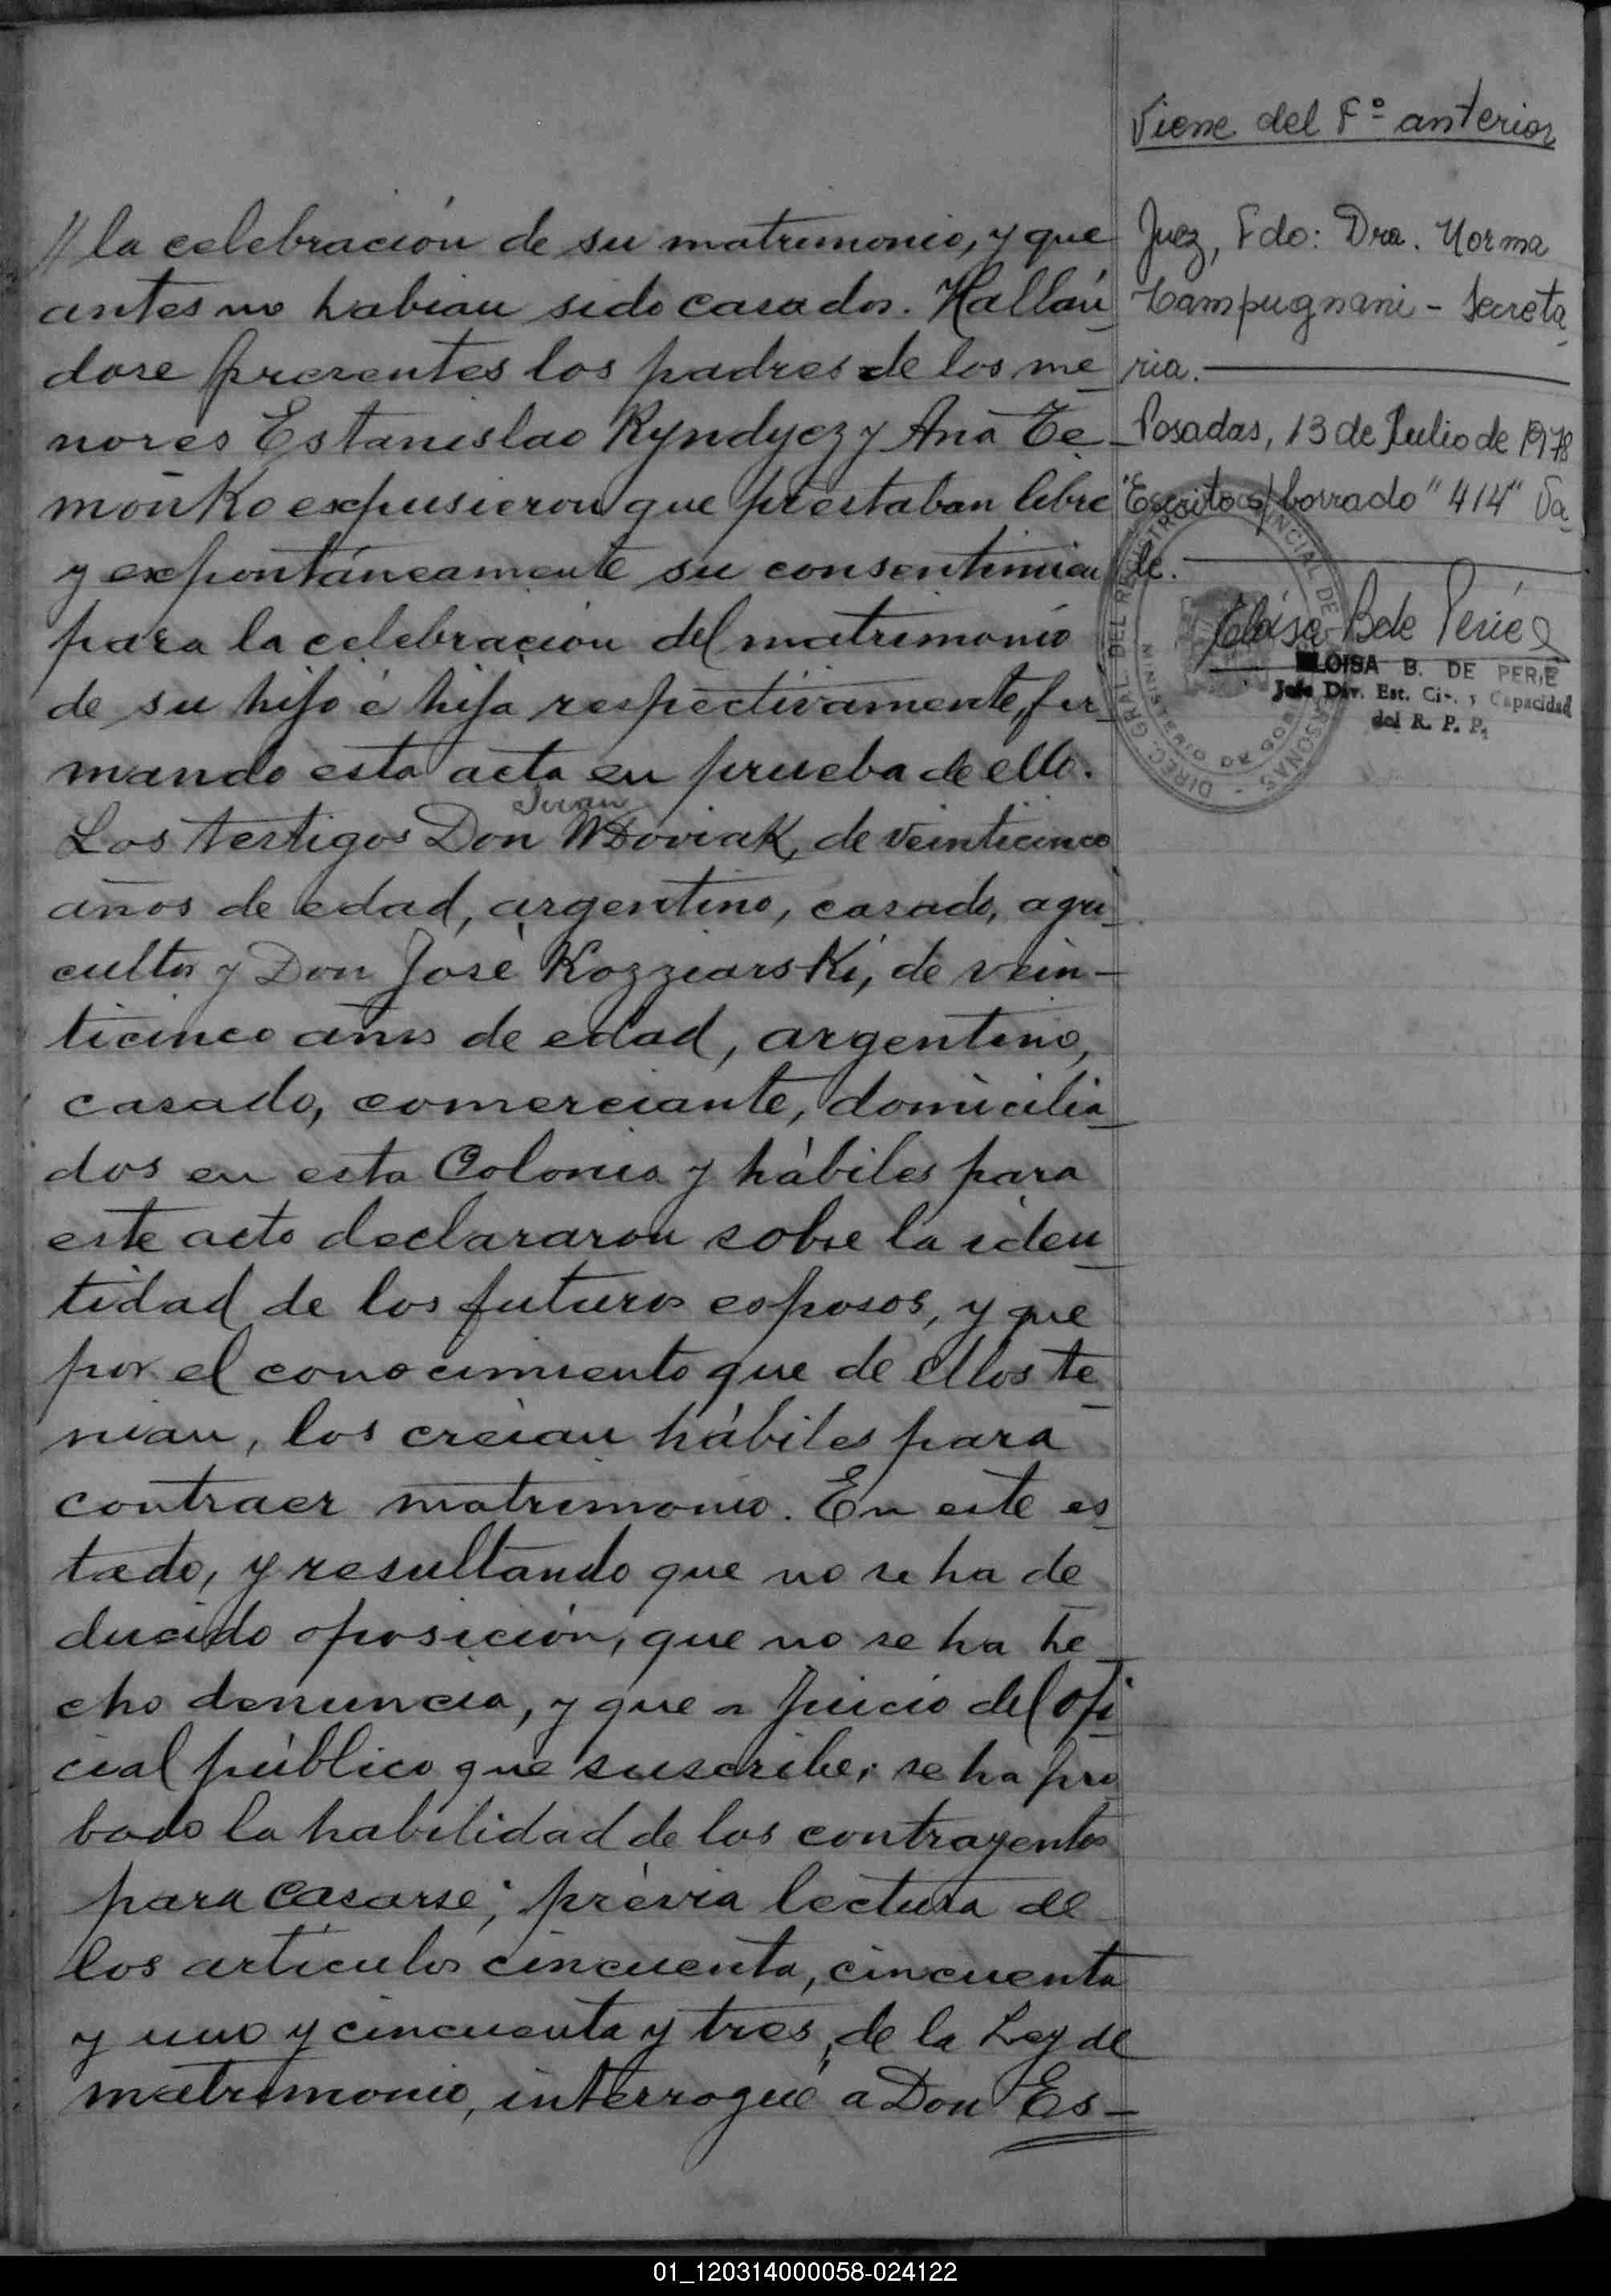 // la celebración de su matrimonio, y que
antes no habian sido casados. Hallán
dose presentes los padres de los me
nores Estanislao Ryndycz y Ana Te
monko expusieron que prestaban libre
y expontáneamente su consentimien
para la celebración del matrimonio
de su hijo é hija respectivamente, fir
mando esta acta en prueba de ello.
Juan
Los testigos Don Woviak, de veinticinco
años de edad, argentino, casado, agri
cultor y Don José Kozziarski, de vein-
ticinco años de edad, argentino,
casado, comerciante, domicilia
dos en esta Colonia y hábiles para
este acto declararon sobre la iden
tidad de los futuros esposos, y que
por el conocimiento que de ellos te
nian, los creian hábiles para
contraer matrimonio. En este es
tado, y resultando que no se ha de
ducido oposición, que no se ha he
cho denuncia, y que a juicio del ofi
cial público que suscribe; se ha pro
bado la habilidad de los contrayentes
para casarse; prévia lectura de
los articulos cincuenta, cincuenta
y uno y cincuenta y tres, de la Ley de
matrimonio, interrogué a Don Es-
Viene del Fº anterior
Juez, Fdo: Dra. Norma
Campugnani - Secreta
ria.
Posadas, 13 de Julio de 1978
"Escrito s/ borrado "414" Va
le.
Eloisa B de Perié
ELOISA B. DE PERIE
Jefe Div. Est. Civ. y Capacidad
del R. P. P.
01_120314000058-024122